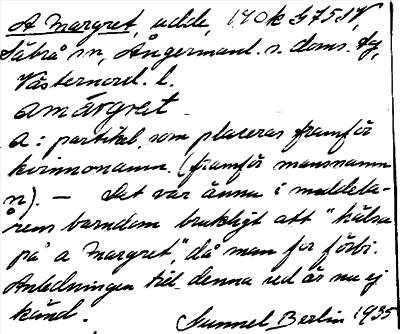 A Margret, udde, 140k G7517,
Säbrå sn, Ångermanl. s. doms. fg,
Västernorrl. l.
amárgret
a: partikel som placeras framför
kvinnonamn. (framför mansnamn
n). – Det var ännu i meddela-
rens barndom brukligt att "hälsa
på a Margret", då man for förbi.
Anledningen till denna sed är nu ej
känd.
Gunnel Berlin 1935